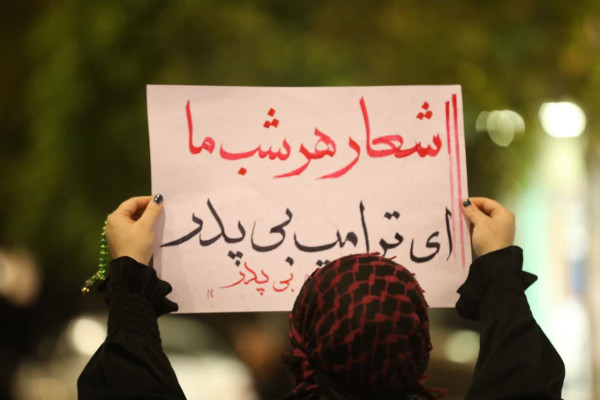 اشعار هر شب ما
ای ترامپ بی پدر
بی پدر "